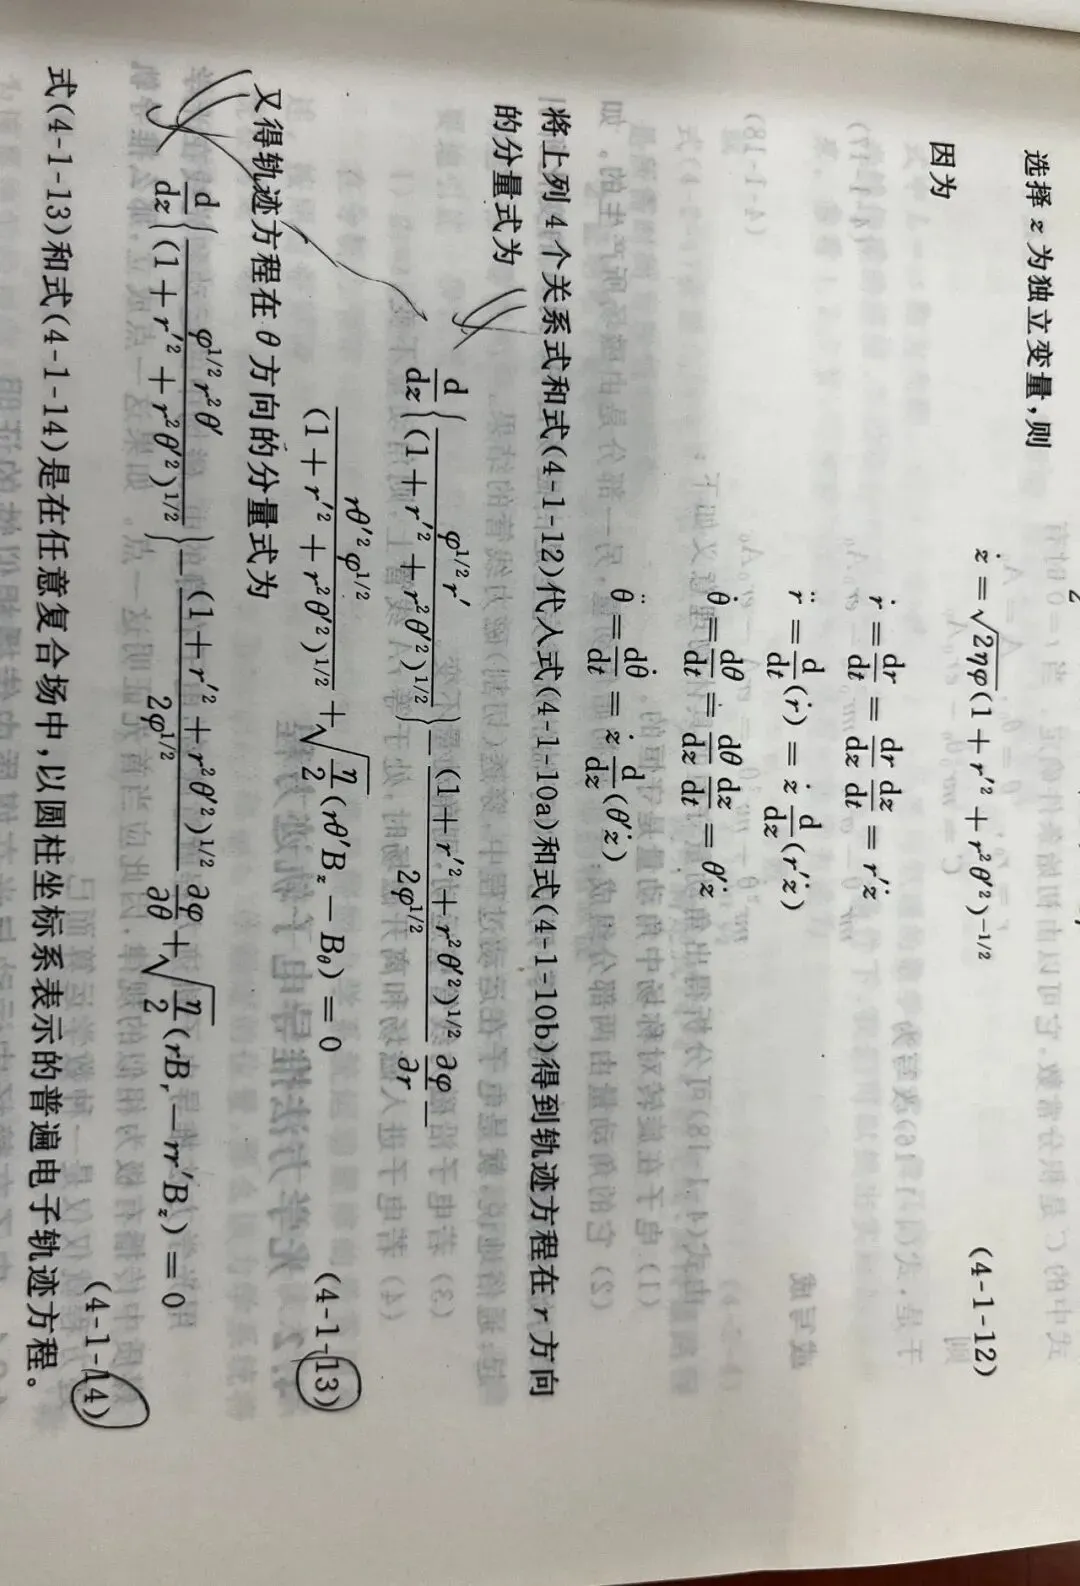 选择 z 为独立变量,则
ż=√(2ηφ)(1+r′²+r²θ′²)^(-1/2) (4-1-12)
因为
ṙ=dr/dt=dr/dz dz/dt=r′ż
r̈=d/dt(ṙ)=ż d/dz(r′ż)
θ̇=dθ/dt=dθ/dz dz/dt=θ′ż
θ̈=dθ̇/dt=ż d/dz(θ′ż)
将上列 4 个关系式和式(4-1-12)代入式(4-1-10a)和式(4-1-10b)得到轨迹方程在 r 方向
的分量式为
d/dz{φ^(1/2)r′/(1+r′²+r²θ′²)^(1/2)}-(1+r′²+r²θ′²)^(1/2)/(2φ^(1/2)) ∂φ/∂r-
rθ′²φ^(1/2)/(1+r′²+r²θ′²)^(1/2)+√(η/2)(rθ′B_z-B_θ)=0 (4-1-13)
又得轨迹方程在 θ 方向的分量式为
d/dz{φ^(1/2)r²θ′/(1+r′²+r²θ′²)^(1/2)}-(1+r′²+r²θ′²)^(1/2)/(2φ^(1/2)) ∂φ/∂θ+√(η/2)(rB_r-rr′B_z)=0
(4-1-14)
式(4-1-13)和式(4-1-14)是在任意复合场中,以圆柱坐标系表示的普遍电子轨迹方程。